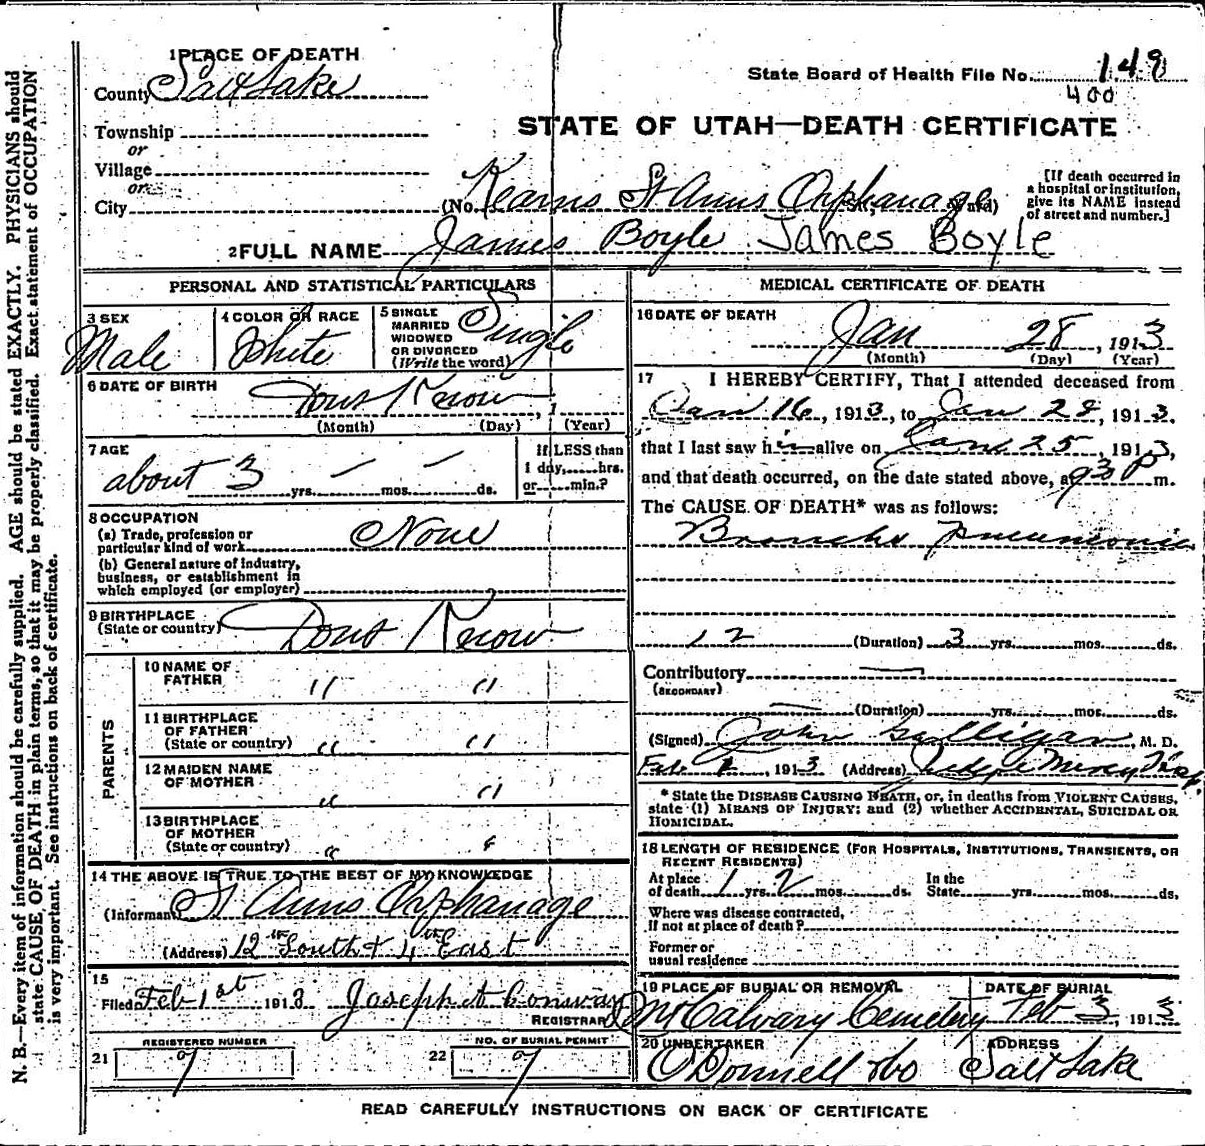 1 PLACE OF DEATH
County Salt Lake
Township
or
Village
or
City
State Board of Health File No. 148
400
STATE OF UTAH—DEATH CERTIFICATE
(No. Kearns St Anns Orphanage St., Ward)
[If death occurred in
a hospital or institution,
give its NAME instead
of street and number.]
2 FULL NAME James Boyle James Boyle
PERSONAL AND STATISTICAL PARTICULARS
3 SEX
Male
4 COLOR OR RACE
White
5 SINGLE
MARRIED
WIDOWED
OR DIVORCED
(Write the word)
Single
6 DATE OF BIRTH
Dont Know , 1
(Month) (Day) (Year)
7 AGE
about 3 yrs. — mos. — ds.
If LESS than
1 day, hrs.
or min.?
8 OCCUPATION
(a) Trade, profession or
particular kind of work None
(b) General nature of industry,
business, or establishment in
which employed (or employer)
9 BIRTHPLACE
(State or country) Dont Know
PARENTS
10 NAME OF
FATHER " "
11 BIRTHPLACE
OF FATHER
(State or country) " "
12 MAIDEN NAME
OF MOTHER " "
13 BIRTHPLACE
OF MOTHER
(State or country) " "
14 THE ABOVE IS TRUE TO THE BEST OF MY KNOWLEDGE
(Informant) St Anns Orphanage
(Address) 12th South & 4th East
15
Filed Feb 1st 1913 Joseph A Conway
REGISTRAR
21 REGISTERED NUMBER
7
22 NO. OF BURIAL PERMIT
7
MEDICAL CERTIFICATE OF DEATH
16 DATE OF DEATH
Jan 28, 1913
(Month) (Day) (Year)
17 I HEREBY CERTIFY, That I attended deceased from
Jan 16, 1913, to Jan 28, 1913.
that I last saw him alive on Jan 25, 1913,
and that death occurred, on the date stated above, at P m.
The CAUSE OF DEATH* was as follows:
Broncho Pneumonia
12 (Duration) 3 yrs. mos. ds.
Contributory —
(SECONDARY)
— (Duration) yrs. mos. ds.
(Signed) John Galligan, M. D.
Feb 1, 1913 (Address) Judge Mercy Hosp.
* State the DISEASE CAUSING DEATH, or, in deaths from VIOLENT CAUSES,
state (1) MEANS OF INJURY; and (2) whether ACCIDENTAL, SUICIDAL OR
HOMICIDAL.
18 LENGTH OF RESIDENCE (FOR HOSPITALS, INSTITUTIONS, TRANSIENTS, OR
RECENT RESIDENTS)
At place
of death 1 yrs. 2 mos. ds.
In the
State yrs. mos. ds.
Where was disease contracted,
If not at place of death?
Former or
usual residence
19 PLACE OF BURIAL OR REMOVAL
Mt Calvary Cemetery
DATE OF BURIAL
Feb 3, 1913
20 UNDERTAKER
O'Donnell & Co
ADDRESS
Salt Lake
READ CAREFULLY INSTRUCTIONS ON BACK OF CERTIFICATE
N. B.—Every item of information should be carefully supplied. AGE should be stated EXACTLY. PHYSICIANS should
state CAUSE OF DEATH in plain terms, so that it may be properly classified. Exact statement of OCCUPATION
is very important. See instructions on back of certificate.